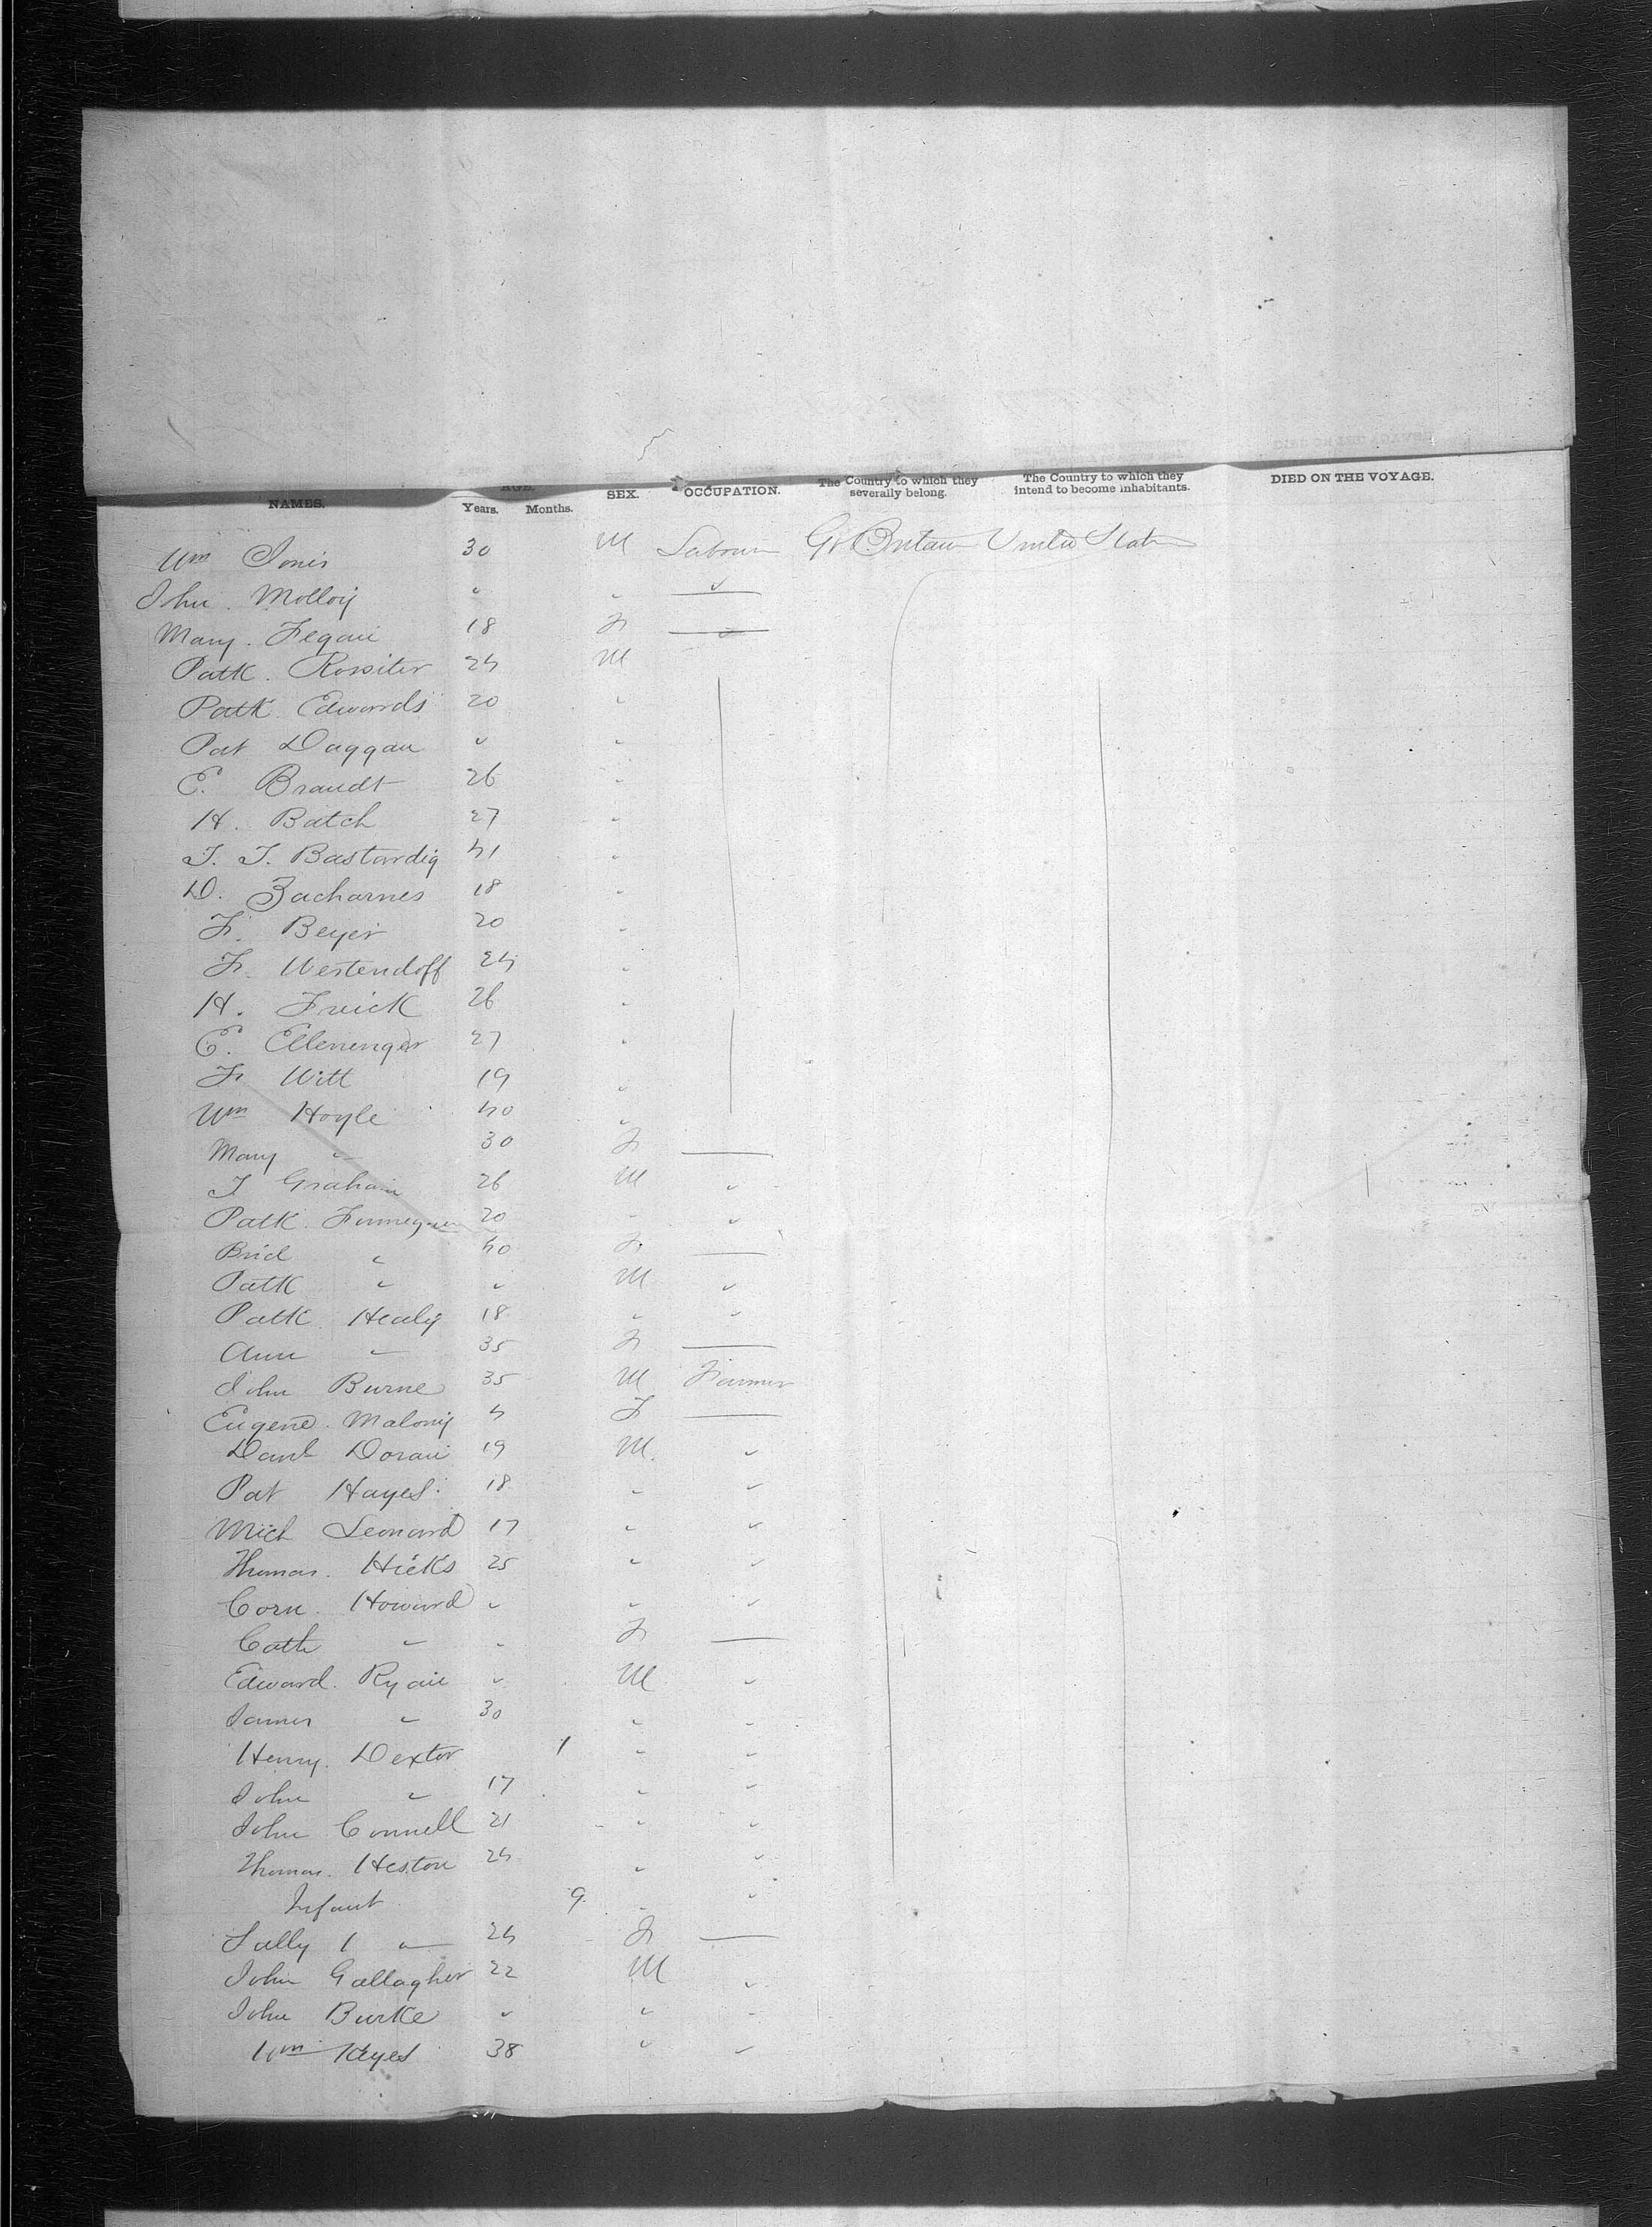 5
NAMES. AGE. Years. Months. SEX. OCCUPATION. The Country to which they severally belong. The Country to which they intend to become inhabitants. DIED ON THE VOYAGE.
Wm Jones 30 M Labourer Gt Britain United States
John Molloy " " "
Mary Fegan 18 F "
Patk Rossiter 24 M
Patk Edwards 20 "
Pat Duggan " "
E. Brandt 26 "
H. Batch 27 "
J. J. Bastardig 41 "
D. Zacharnes 18 "
F. Beyer 20 "
F. Westendoff 24 "
H. Frick 26 "
E. 27 "
F. Witt 19 "
Wm Hoyle 40 "
Mary " 30 F —
J Graham 26 M "
Patk Finnegan 20 " "
Brid " 40 F —
Patk " " M "
Patk Healy 18 " "
Ann " 35 F —
John Burne 35 M Farmer
Eugene Malony 4 F —
Danl Doran 19 M "
Pat Hayes 18 " "
Mich Leonard 17 " "
Thomas Hicks 25 " "
Corn. Howard " " "
Cath " " F —
Edward Ryan " M "
James " 30 " "
Henry Dexter 1 " "
John " 17 " "
John Connell 21 " "
Thomas Heston 24 " "
Infant 9 " "
Sally " 24 F —
John Gallagher 22 M "
John Burke " " "
Wm Keyes 38 " "